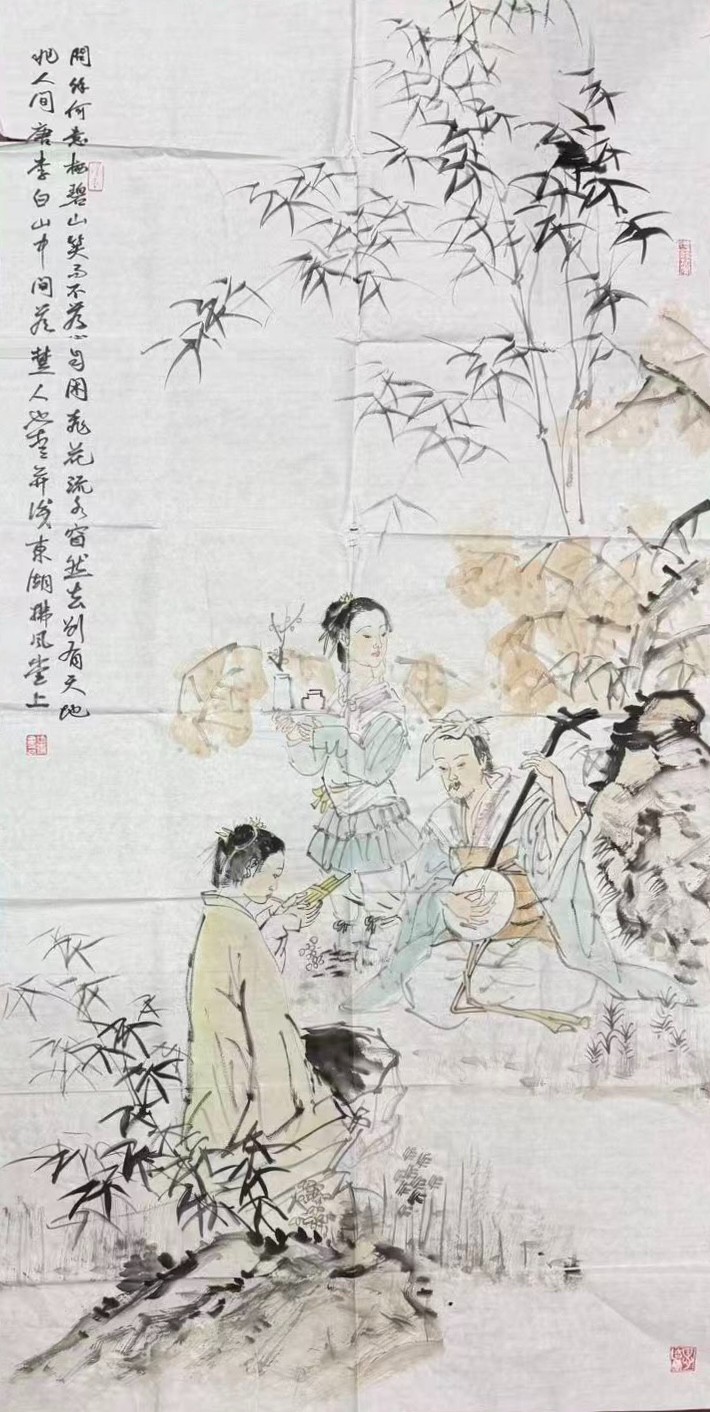 問余何意栖碧山笑而不答心自閑桃花流水窅然去別有天地
非人间唐李白山中问答楚人 並识東湖拂风堂上